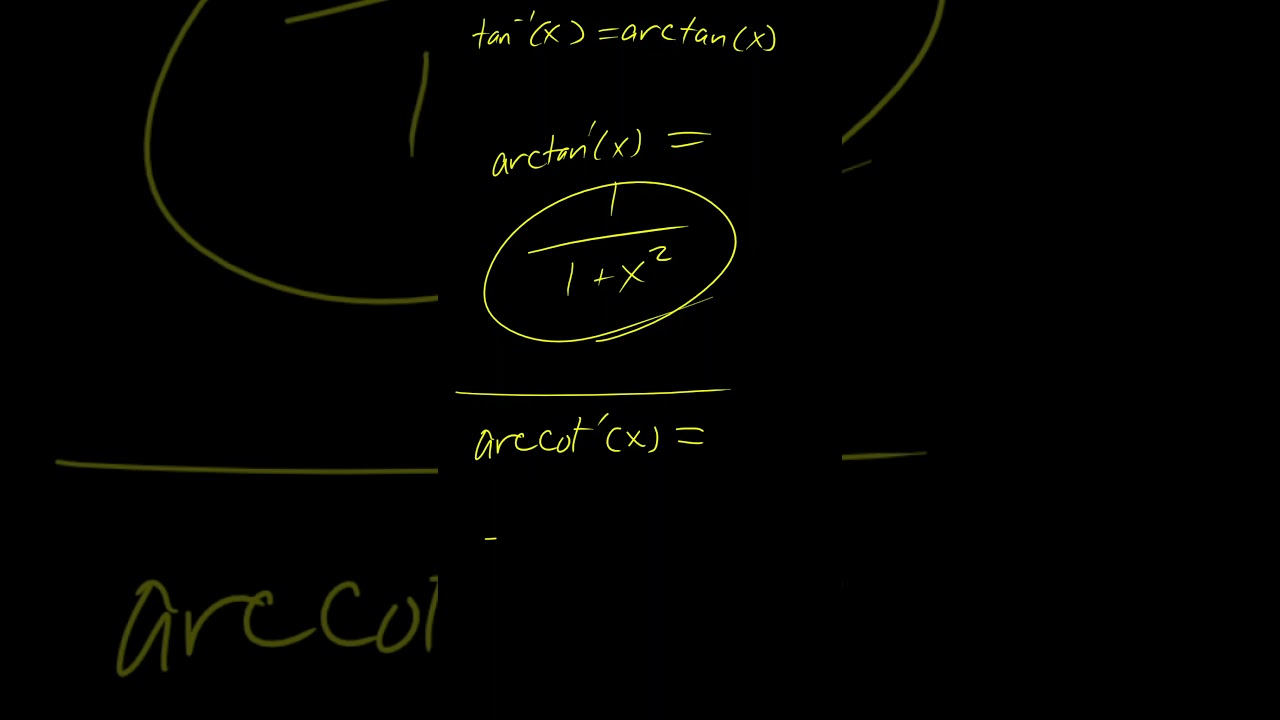 tan⁻¹(x) = arctan(x)
arctan'(x) =
1
1 + x²
arccot'(x) =
-
1
arccot